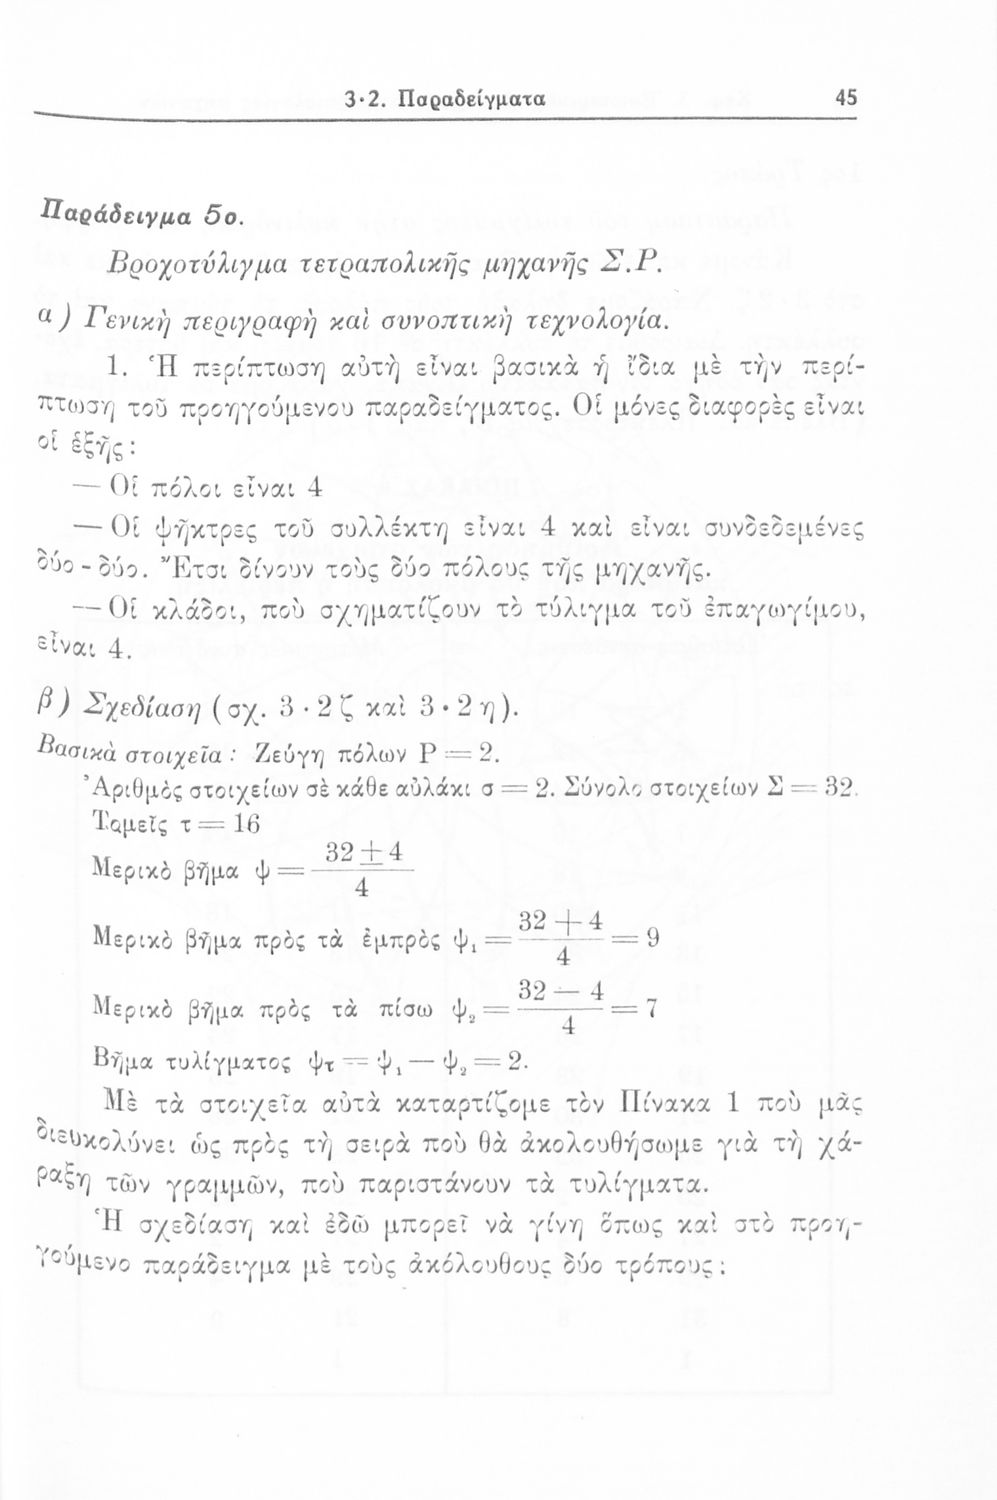 3·2. Παραδείγματα 45
Παράδειγμα 5ο.
Βροχοτύλιγμα τετραπολικῆς μηχανῆς Σ.Ρ.
α) Γενικὴ περιγραφὴ καὶ συνοπτικὴ τεχνολογία.
1. Ἡ περίπτωση αὐτὴ εἶναι βασικὰ ἡ ἴδια μὲ τὴν περί-
πτωση τοῦ προηγούμενου παραδείγματος. Οἱ μόνες διαφορὲς εἶναι
οἱ ἑξῆς:
— Οἱ πόλοι εἶναι 4
— Οἱ ψῆκτρες τοῦ συλλέκτη εἶναι 4 καὶ εἶναι συνδεδεμένες
δύο - δύο. Ἔτσι δίνουν τοὺς δύο πόλους τῆς μηχανῆς.
— Οἱ κλάδοι, ποὺ σχηματίζουν τὸ τύλιγμα τοῦ ἐπαγωγίμου,
εἶναι 4.
β) Σχεδίαση (σχ. 3·2ζ καὶ 3·2η).
Βασικὰ στοιχεῖα: Ζεύγη πόλων Ρ = 2.
Ἀριθμὸς στοιχείων σὲ κάθε αὐλάκι σ = 2. Σύνολο στοιχείων Σ = 32.
Τομεῖς τ = 16
Μερικὸ βῆμα ψ = (32 ± 4) / 4
Μερικὸ βῆμα πρὸς τὰ ἐμπρὸς ψ₁ = (32 + 4) / 4 = 9
Μερικὸ βῆμα πρὸς τὰ πίσω ψ₂ = (32 — 4) / 4 = 7
Βῆμα τυλίγματος ψτ = ψ₁ — ψ₂ = 2.
Μὲ τὰ στοιχεῖα αὐτὰ καταρτίζομε τὸν Πίνακα 1 ποὺ μᾶς
διευκολύνει ὡς πρὸς τὴ σειρὰ ποὺ θὰ ἀκολουθήσωμε γιὰ τὴ χά-
ραξη τῶν γραμμῶν, ποὺ παριστάνουν τὰ τυλίγματα.
Ἡ σχεδίαση καὶ ἐδῶ μπορεῖ νὰ γίνη ὅπως καὶ στὸ προη-
γούμενο παράδειγμα μὲ τοὺς ἀκόλουθους δύο τρόπους: